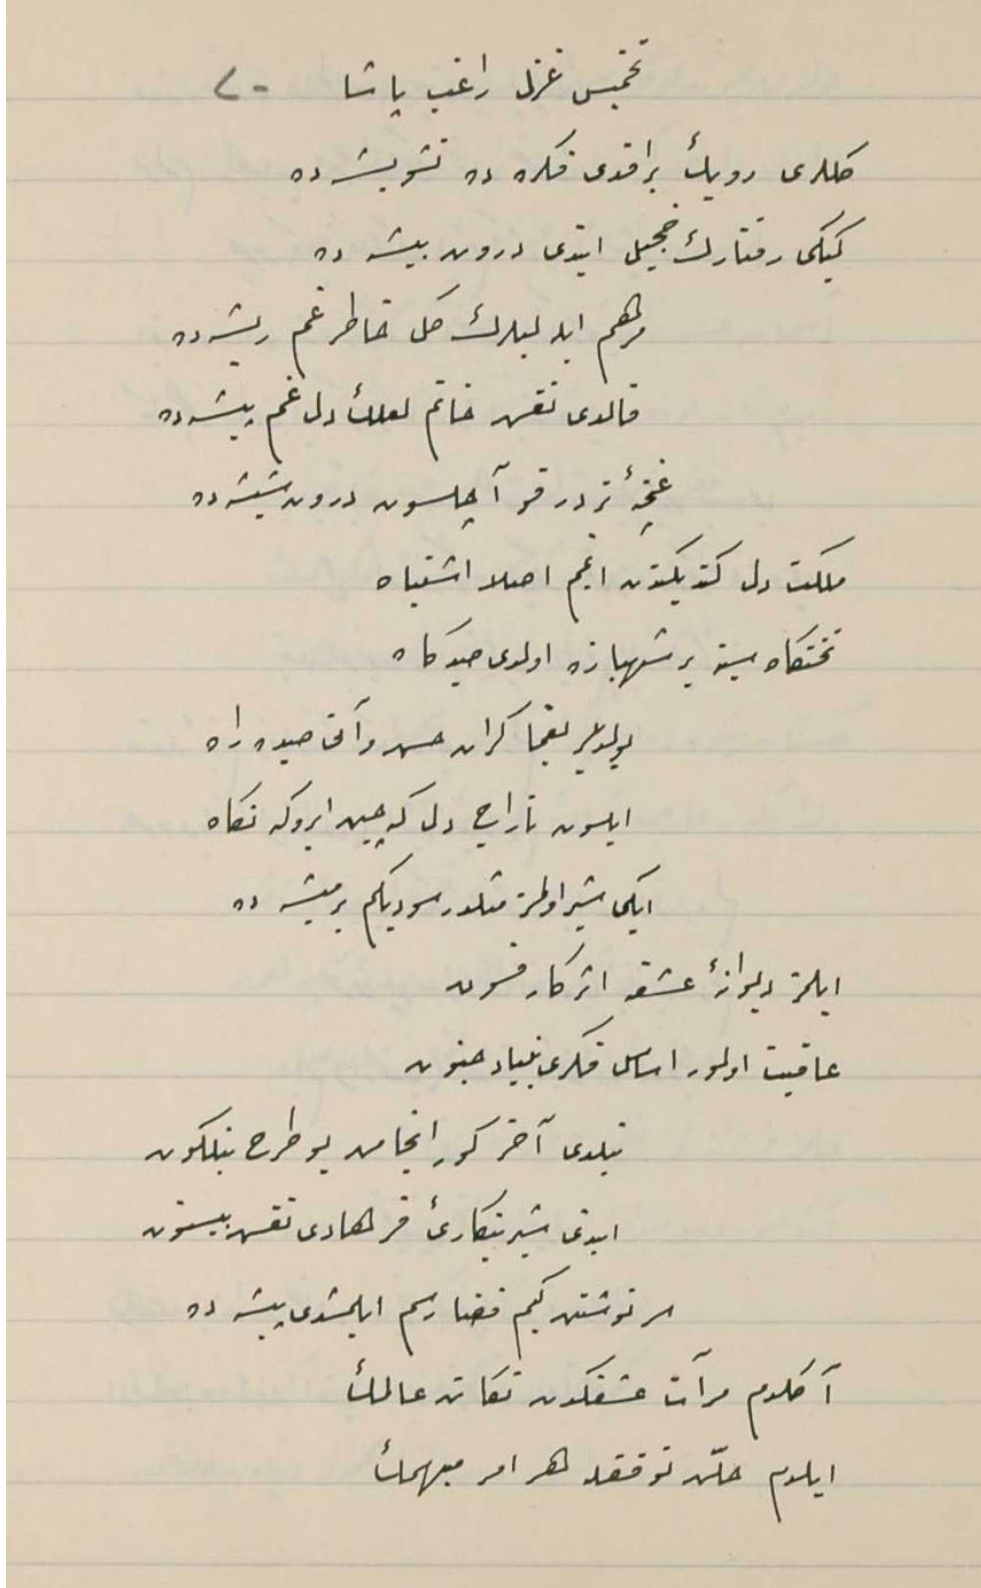 تخمیس غزل راغب پاشا -
كللری رویڭ براقدی فكره ده تشویشده
كبكی رفتارڭ خجیل ایتدی درون بیشه ده
مرهم ایله لبلرڭ كل خاطر غم ریشه ده
قالدی نقش خاتم لعلڭ دل غم پیشه ده
غنچۀ تردر قو آچلسون درون شیشه ده
ملكت دل كتدیكندن ایتم اصلا اشتباه
تختكاه سینه بر شهبازه اولدی صیدكاه
بولدیلر یغماكران حسن و آن صیده راه
ایلسون تاراج دل كه چین ابرو كه نكاه
ایكی شیر اولمز مثلدر سودیكم بر میشه ده
ایلمز دیوانۀ عشقه اثر كار فسون
عاقبت اولور اساس فكری بنیاد جنون
آخر كور انجامن بو طرح نیلكون
ایتدی شیرینكارئ فرهادی نقش بیستون
سر نوشتن كیم قضا رسم ایلمشدی پیشه ده
آكلدم مرآت عشقكدن نكات عالمڭ
ایلدم حلّن توققله هر امر مبهمڭ